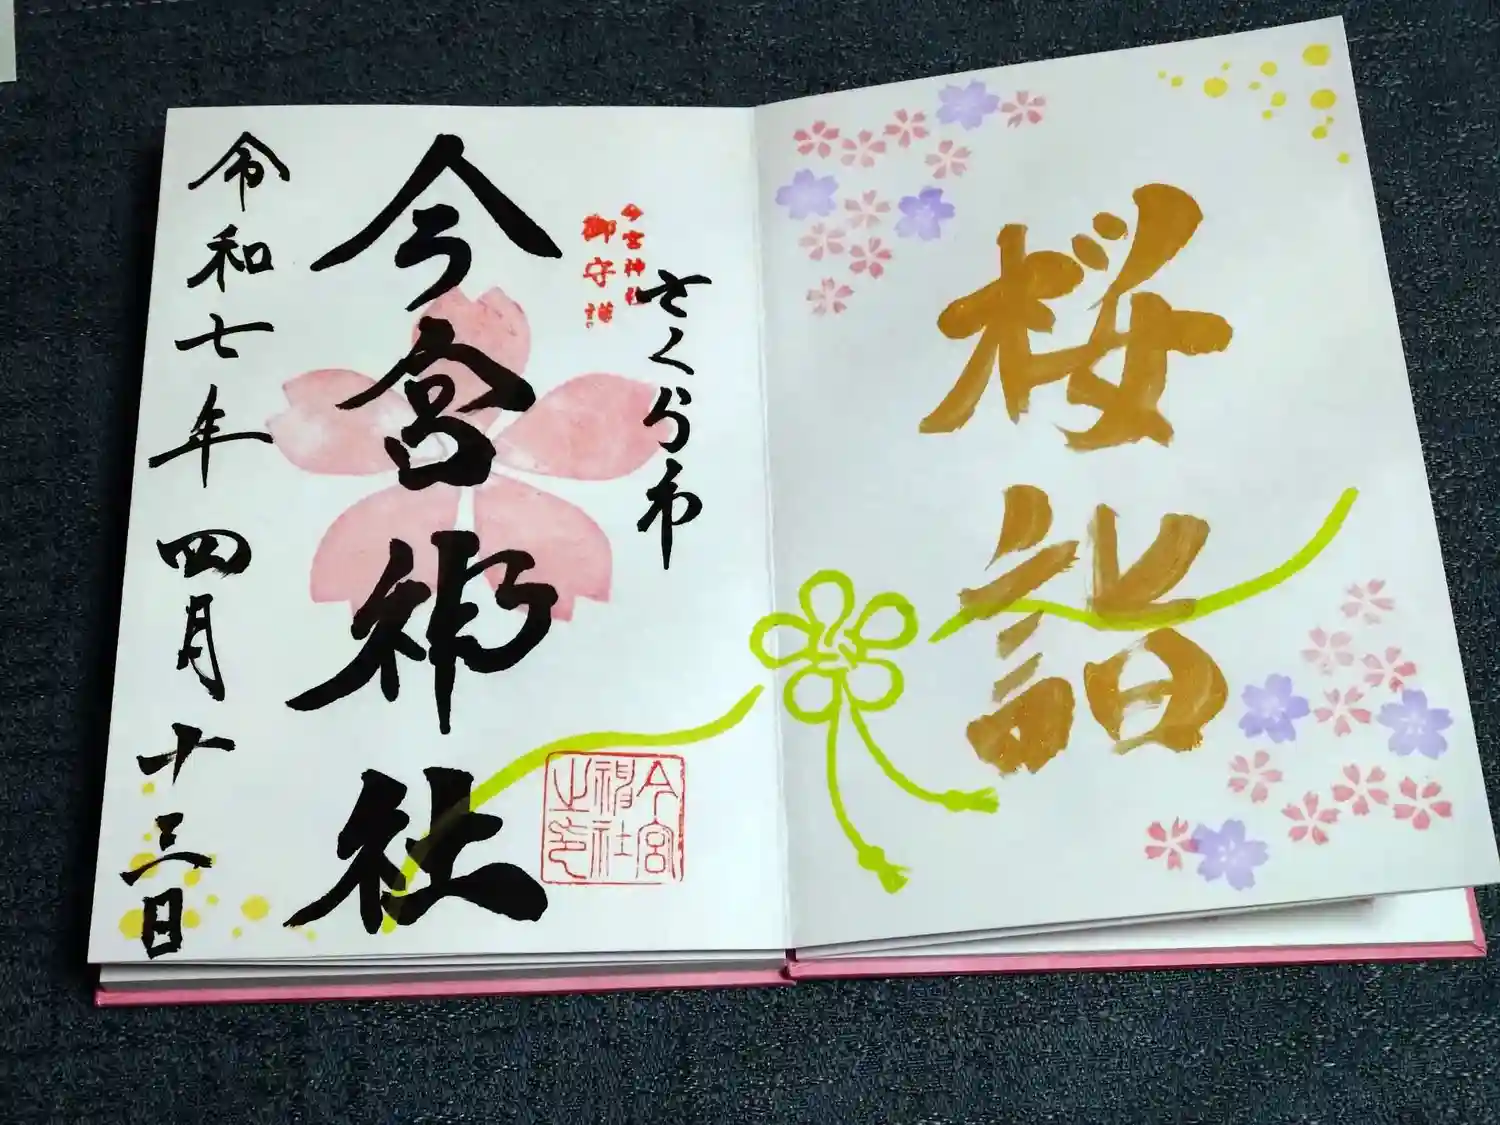 桜詣
さくら市
今宮神社
御守護
今宮神社
今宮神社之印
令和七年四月十三日